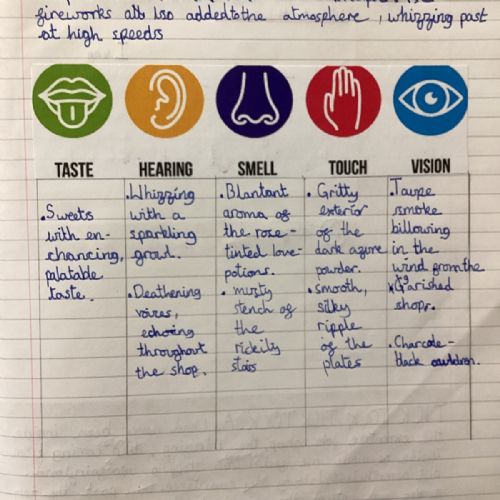 fireworks all lso added to the atmosphere, whizzing past
at high speeds
TASTE
HEARING
SMELL
TOUCH
VISION
• Sweets
with en-
chancing,
palatable
taste.
• Whizzing
with a
sparkling
growl.
• Deathening
voices,
echoing
throughout
the shop.
• Blantant
aroma of
the rose-
tinted love-
potions.
• musty
stench of
the
rickily
stais
• Gritty
exterior
of the
dark azure
powder.
• smooth,
silky
ripple
of the
plates
• Taupe
smoke
billowing
in the
wind from the
Garished
shops.
• Charcole-
black cauldron.